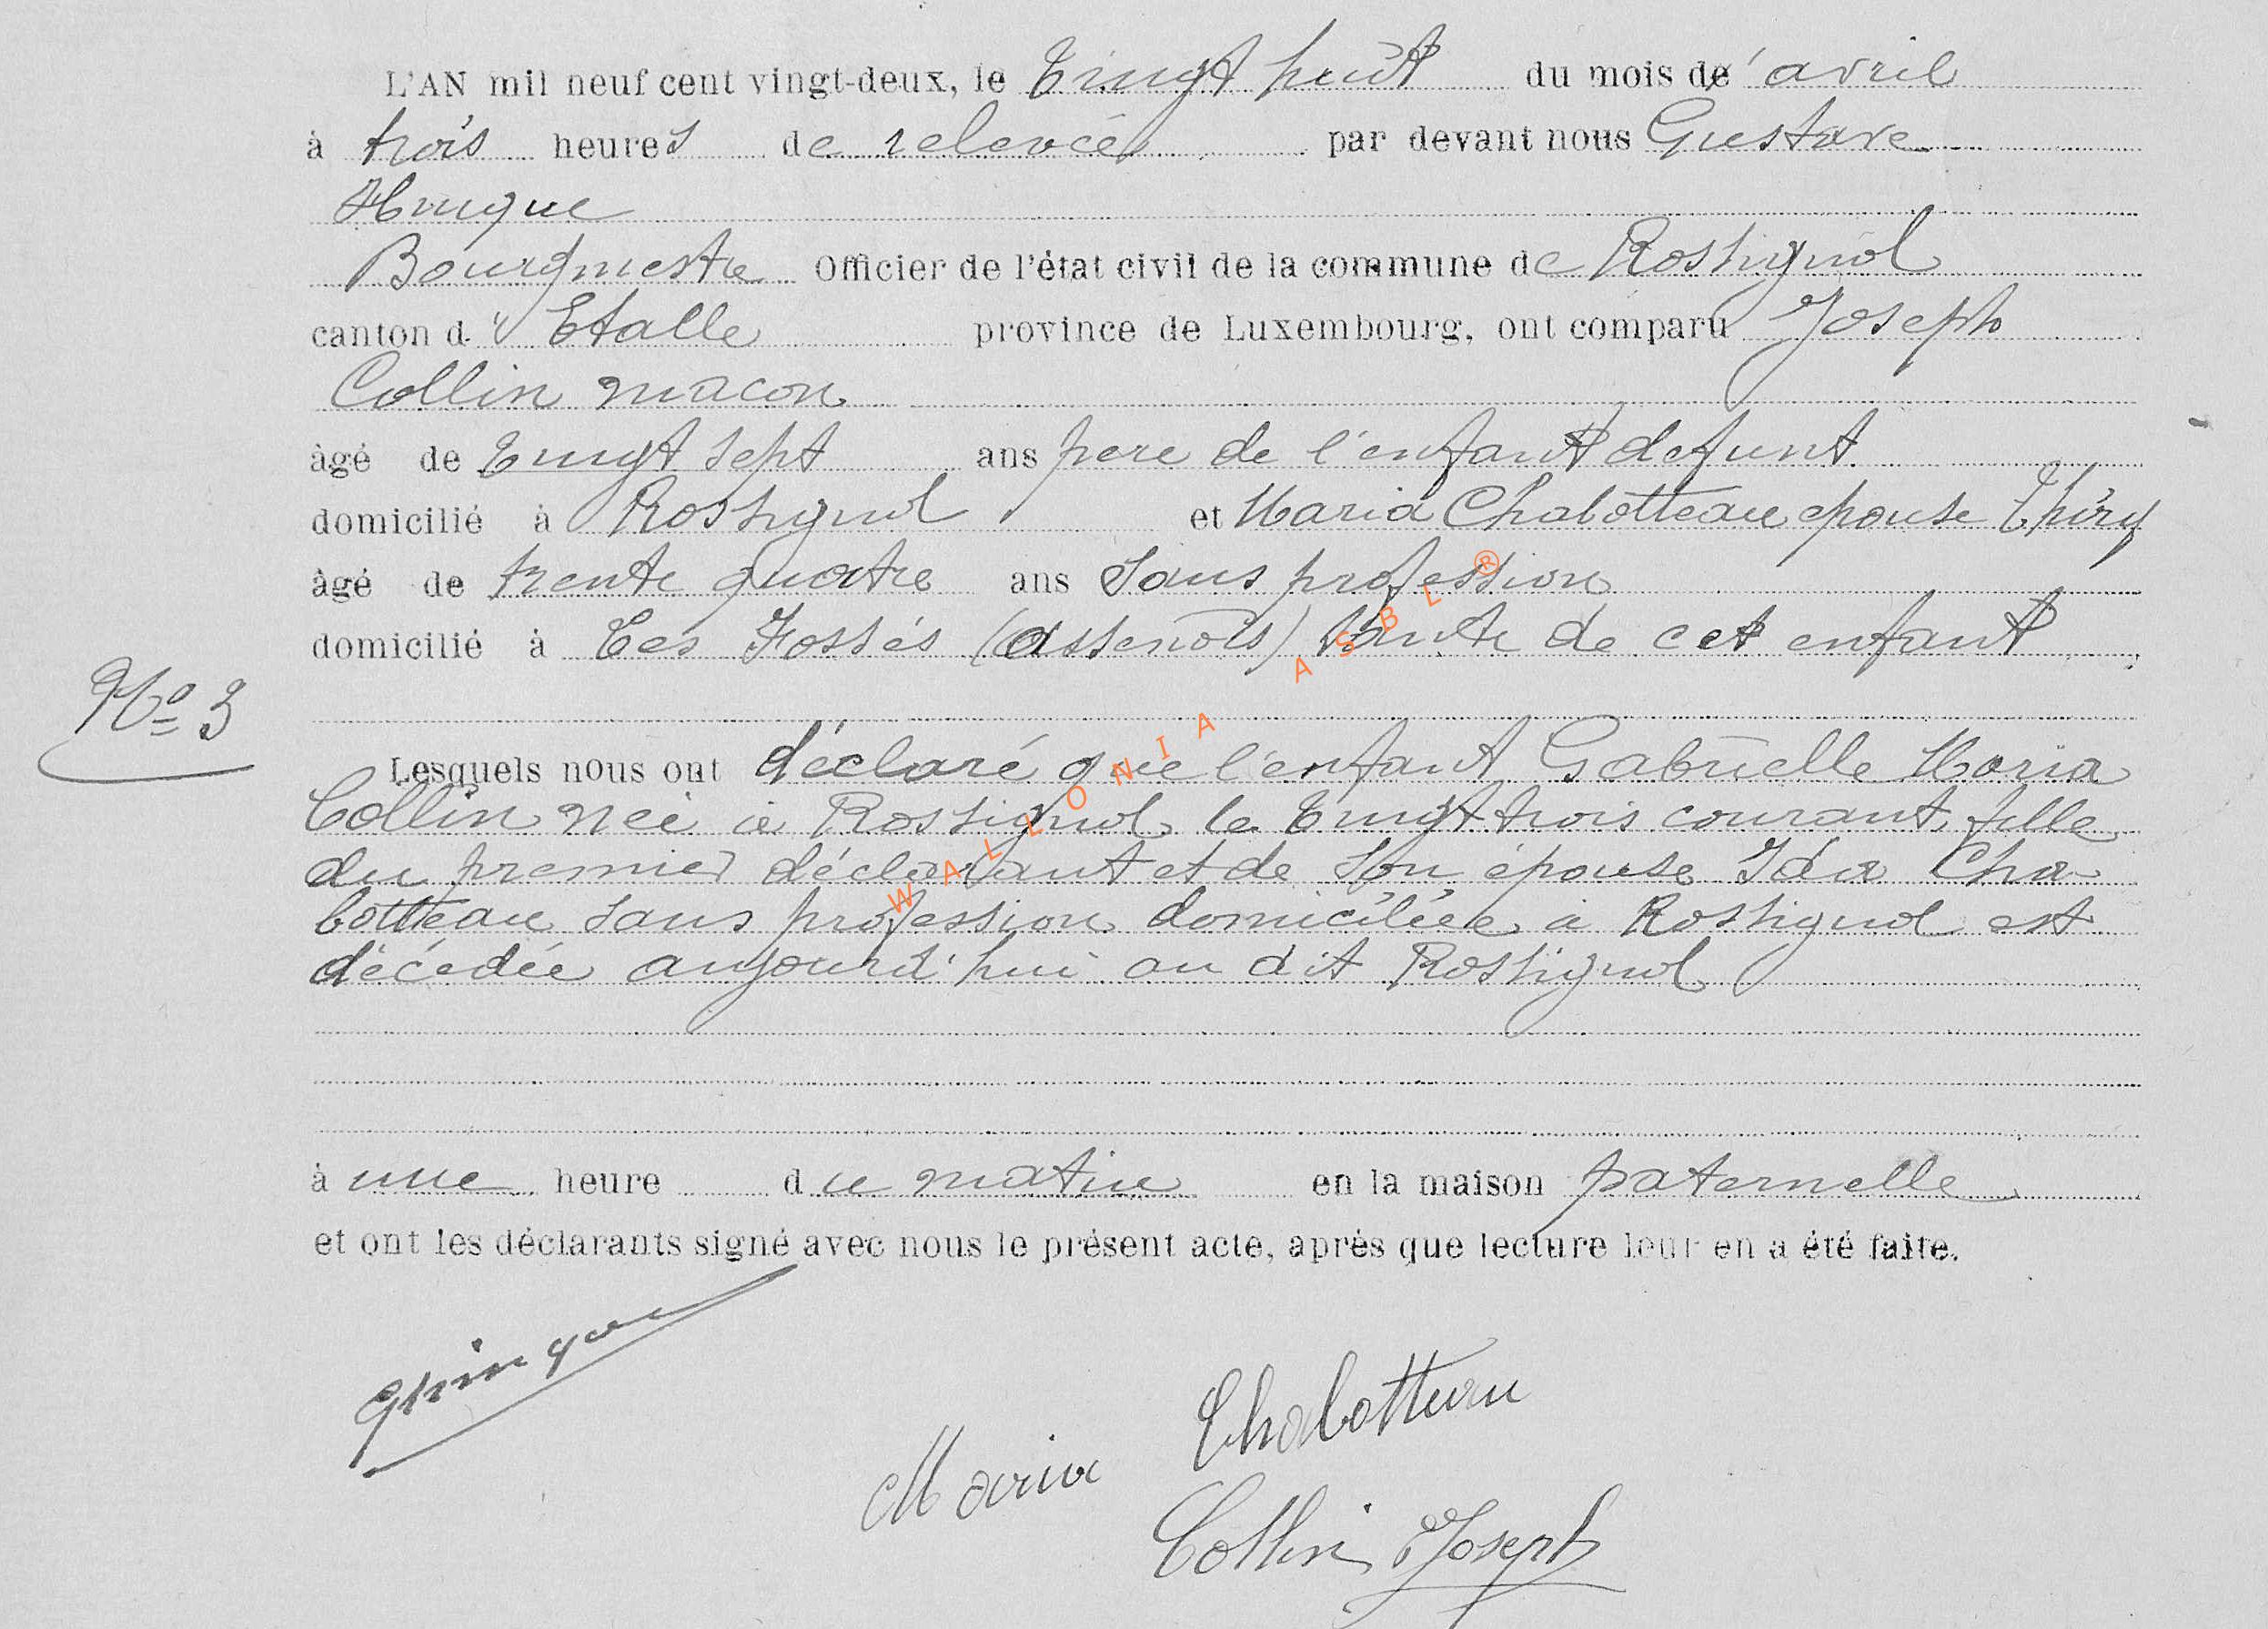 L'AN mil neuf cent vingt-deux, le Vingt huit du mois d'avril
à trois heures de relevée par devant nous Gustave
Hinque
Bourgmestre Officier de l'état civil de la commune de Rossignol
canton d' Etalle province de Luxembourg, ont comparu Joseph
Collin macon
âgé de Vingt sept ans pere de l'enfant defunt
domicilié à Rossignol et Maria Chabotteau epouse Thiry
âgé de trente quatre ans Sans profession
domicilié à Les Fossés (Assenois) tante de cet enfant
No 3
Lesquels nous ont déclaré que l'enfant Gabrielle Maria
Collin née à Rossignol le Vingt trois courant, fille
du premier déclarant et de son épouse Ida Cha-
botteau sans profession domiciliée à Rossignol est
décédée aujourd'hui au dit Rossignol
à une heure du matin en la maison paternelle
et ont les déclarants signé avec nous le présent acte, après que lecture leur en a été faite.
Maria Chabotteau
Collin Joseph
WALLONIA ASBL ®